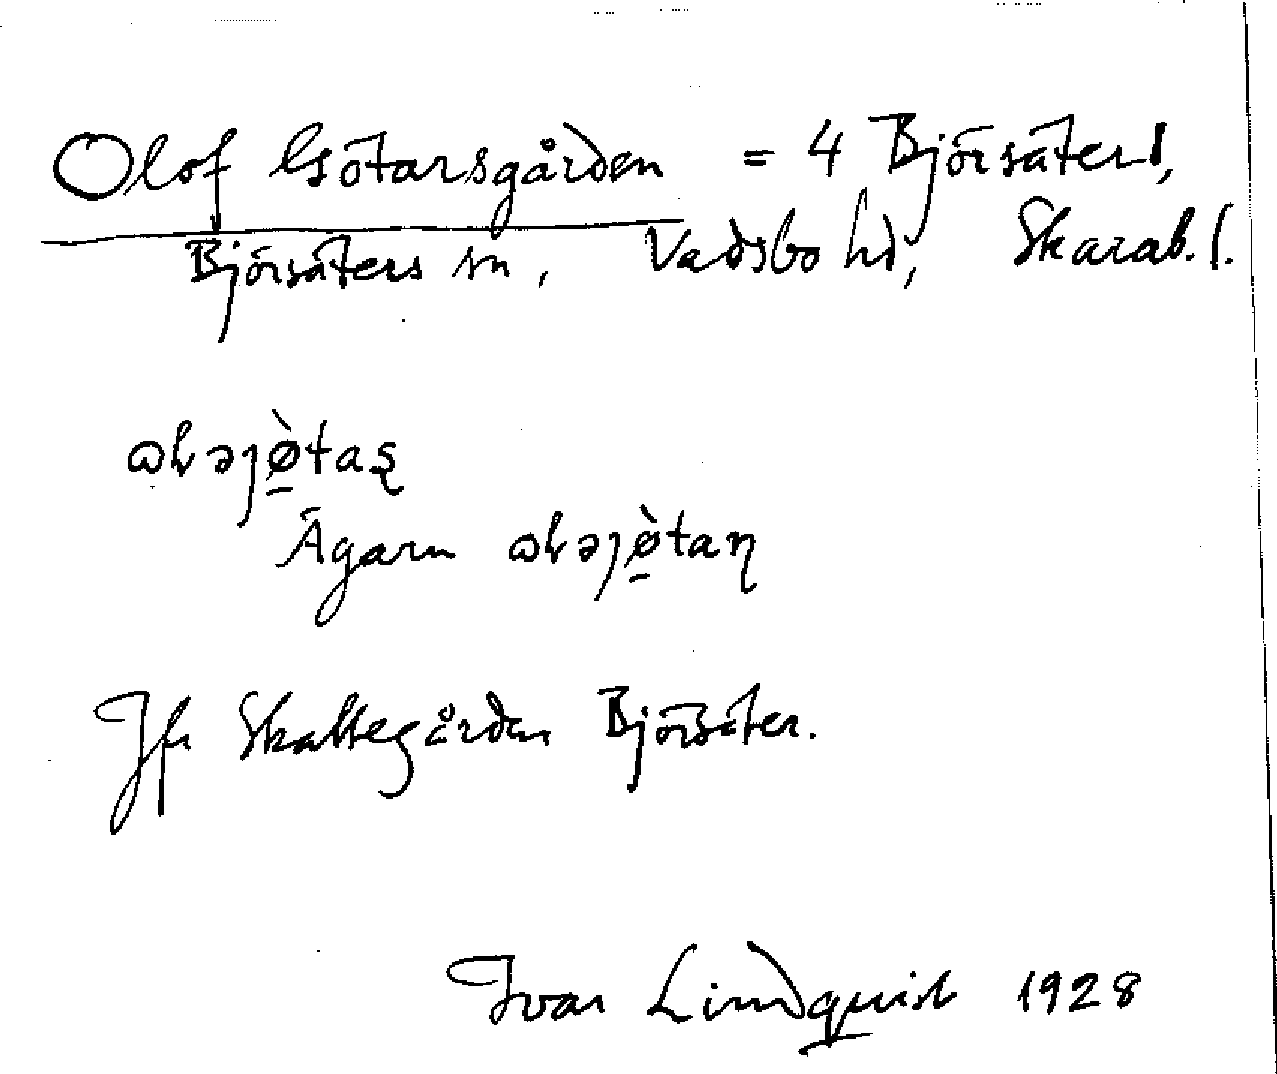 Olof Götarsgården = 4 Björsäter,
Björsäters sn, Vadsbo hd, Skarab. l.
ɷɫəȷø̀taʂ
Ägarn ɷɫəȷø̀taɳ
Jfr Skattegården Björsäter.
Ivar Lindquist 1928